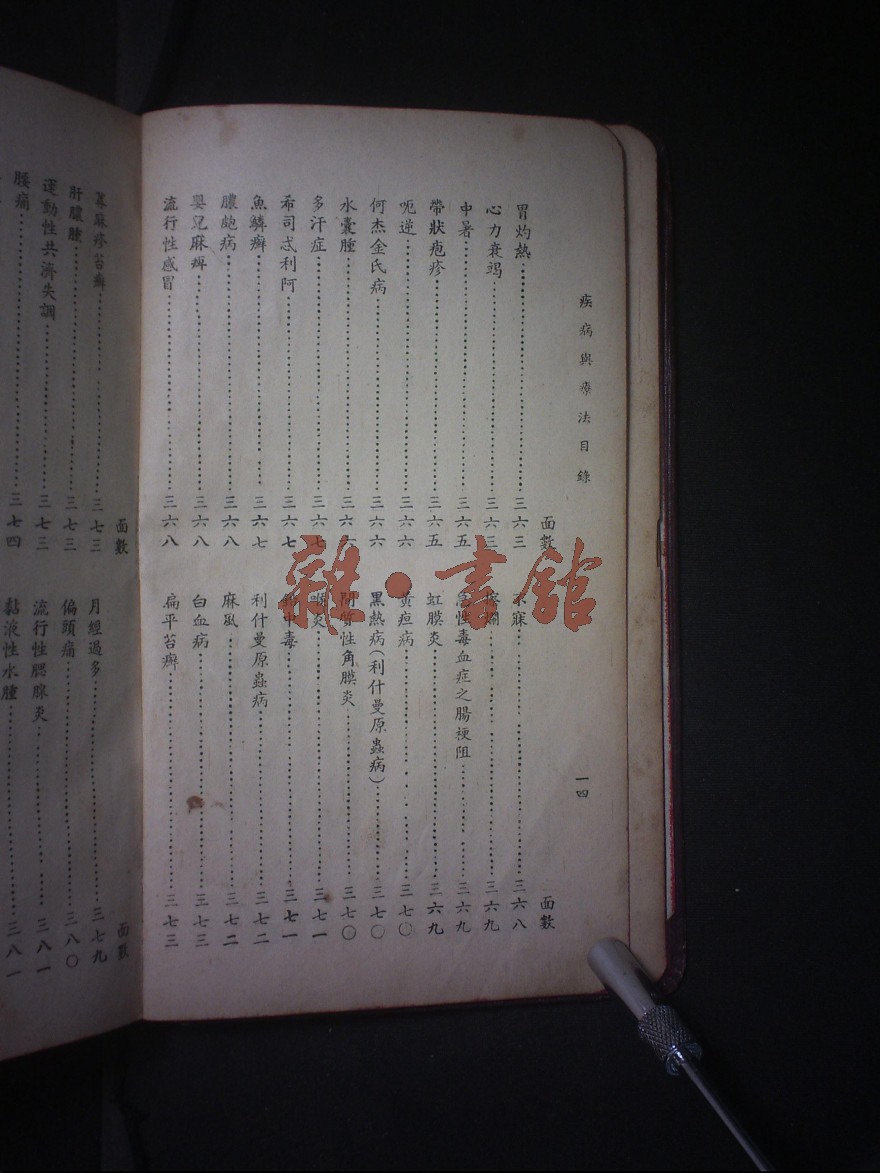 疾病與療法目錄
一四
面數
胃灼熱……三六三
心力衰竭……三六三
中暑……三六五
帶狀疱疹……三六五
呃逆……三六六
何杰金氏病……三六六
水囊腫……三六六
多汗症……三六七
希司忒利阿……三六七
魚鱗癬……三六七
膿皰病……三六八
嬰兒麻痺……三六八
流行性感冒……三六八
面數
不寐……三六八
急性毒血症之腸梗阻……三六九
虹膜炎……三六九
黃疸病……三七〇
黑熱病(利什曼原蟲病)……三七〇
間質性角膜炎……三七〇
喉炎……三七一
鉛中毒……三七一
利什曼原蟲病……三七二
麻瘋……三七二
白血病……三七三
扁平苔癬……三七三
面數
蕁麻疹苔癬……三七三
肝膿腫……三七三
運動性共濟失調……三七三
腰痛……三七四
面數
月經過多……三七九
偏頭痛……三八〇
流行性腮腺炎……三八一
黏液性水腫……三八一
雜·書館